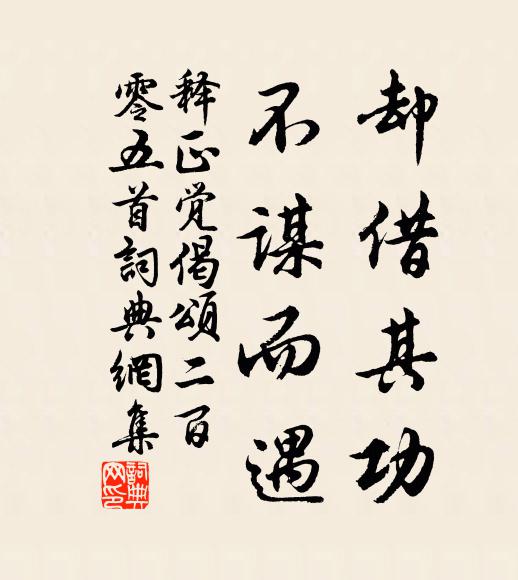 却借其功
不谋而遇
释正觉偈颂二百
零五首詞典網集
詞典网印